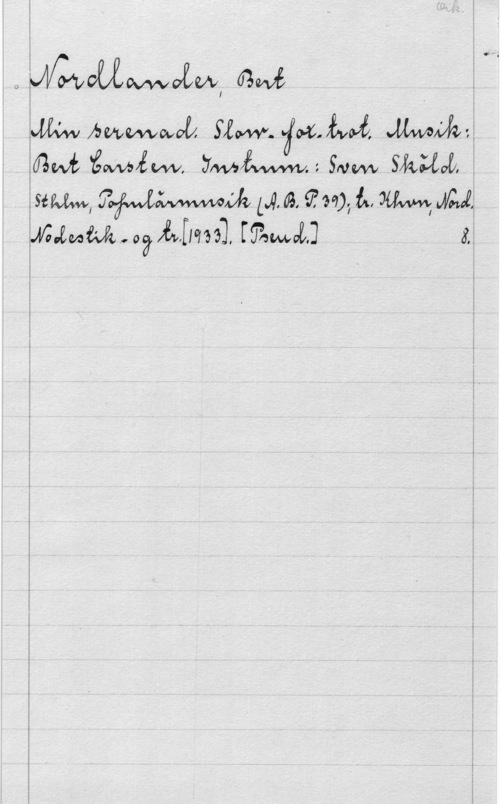 ork.
Nordlander, Bert
Min serenad. Slow-fox-trot. Musik:
Bert Carsten. Instrum.: Sven Sköld.
Sthlm, Populärmusik (A.B.P. 39); tr. Khvn, Nord.
Nodestik- og tr. [1933]. [Pseud.] 8.